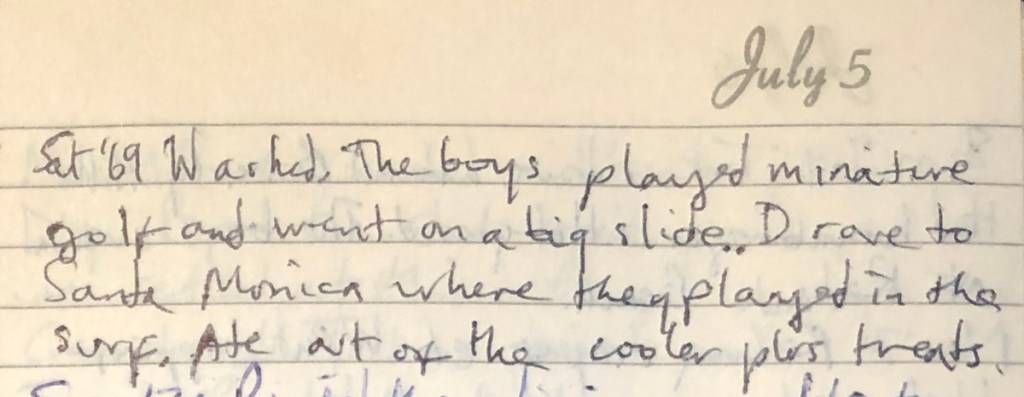 July 5
Sat '69 Washed. The boys played minature
golf and went on a big slide.. Drove to
Santa Monica where they played in the
surf. Ate out of the cooler plus treats.